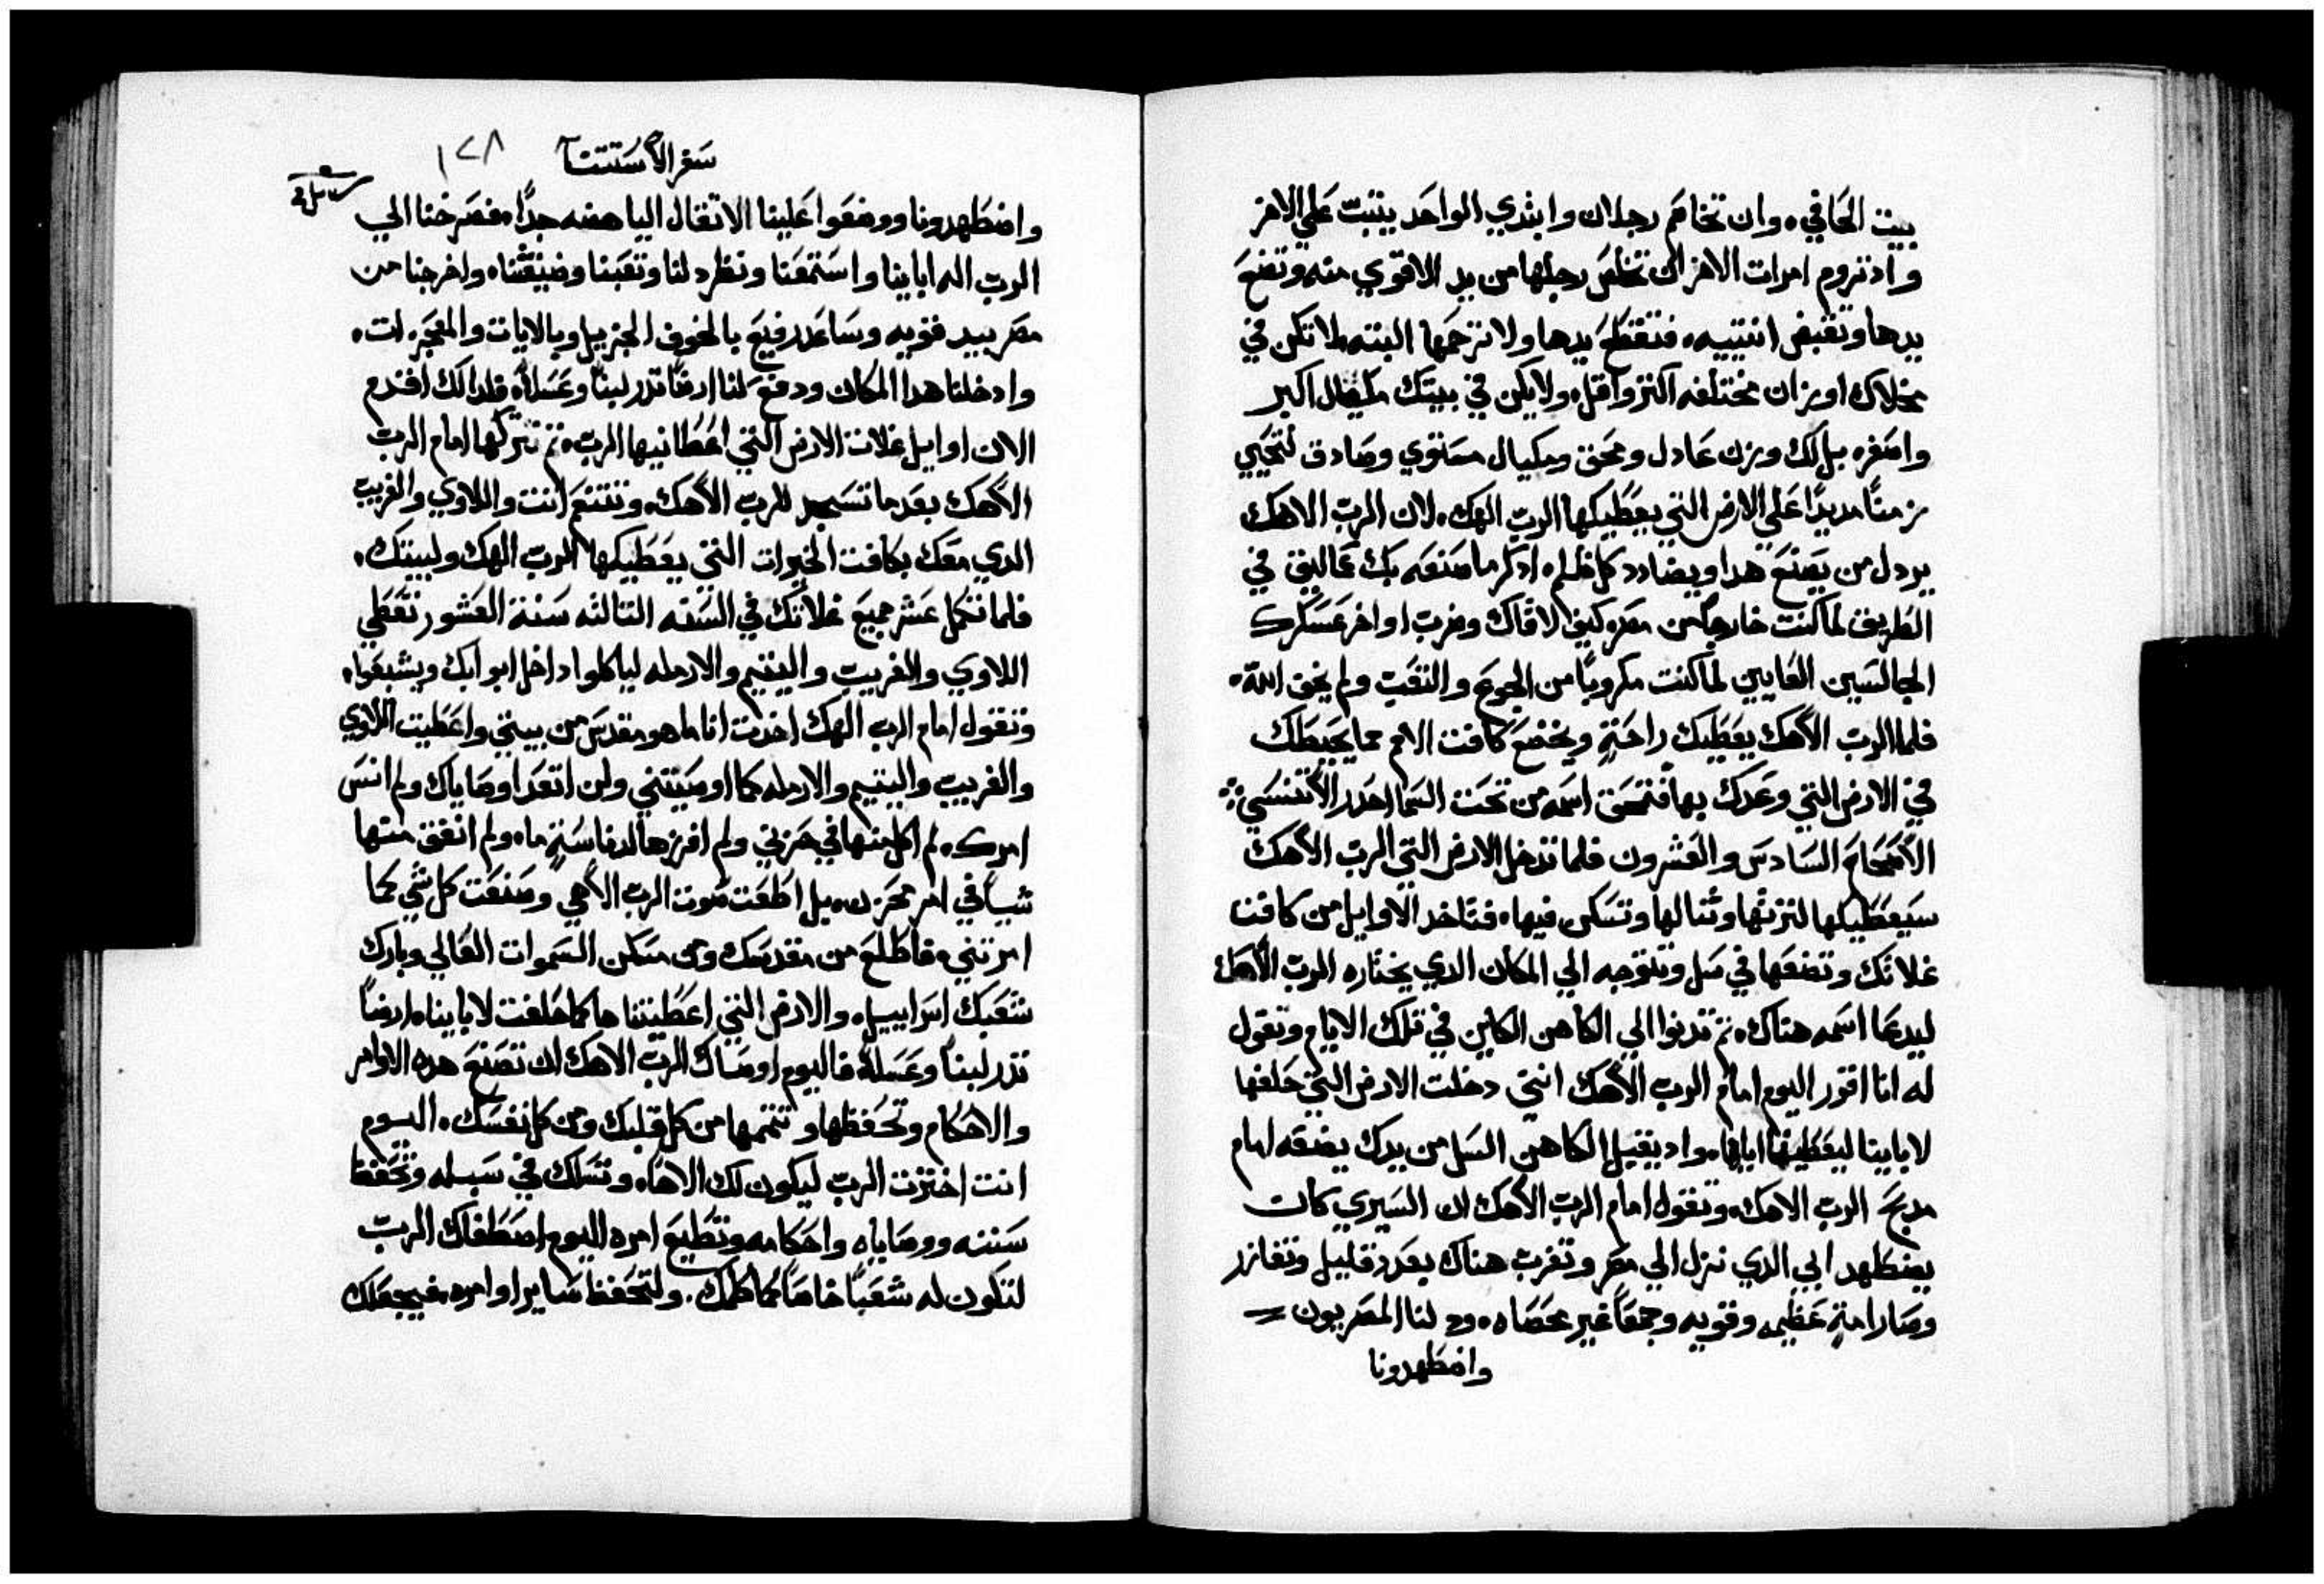 بيت الحافي. وان تخاصم رجلان وابتدي الواحد يتبت علي الاخر
وادتروم امرات الاخر ان تخلص رجلها من يد الاقوي منه وتضع
يدها وتقبض انتييه. فتقطع يدها ولا ترحمها البته. لا تكن في
مخلاك اوزان مختلفه اكتر واقل. ولا يكن في بيتك مكيال اكبر
واصغر. بل لك وزن عادل ومحق ومكيال مستوي وصادق لتحيي
زمناً مديداً علي الارض التي يعطيكها الرب الهك. لان الرب الاهك
يردل من يصنع هدا ويضادد كل ظلم. ادكر ما صنعه بك عماليق في
الطريق لما كنت خارجاً من مصر. كيف لاقاك وضرب اواخر عسكرك
الجالسين العايين لما كنت مكروباً من الجوع والتعب ولم يخف الله.
فلما الرب الاهك يعطيك راحةٍ ويخضع كافت الامم مما يحيطك
في الارض التي وعدك بها فتمحق اسمه من تحت السما احدر الا تنسي
الاصحاح السادس والعشرون فلما تدخل الارض التي الرب الاهك
سيعطيكها لترتها وتنالها وتسكن فيها. فتاخد الاوايل من كافت
غلاتك وتضعها في سل وتتوجه الي المكان الدي يختاره الرب الاهك
ليدعا اسمه هناك. تم تدنوا الي الكاهن الكاين في تلك الايام وتقول
له انا اقور اليوم امام الرب الاهك انني دخلت الارض التي حلفها
لابايناا ليعطيها ايانا. واد يقبل الكاهن السل من يدك يضعه امام
مدبح الرب الاهك. وتقول امام الرب الاهك ان السيري كان
يضطهد ابي الدي نزل الي مصر وتغرب هناك بعددٍ قليل
وصار امةٍ عظيمه وقويه وجمعاً غير محصاه. وح لنا المصريون
واضطهدونا
سفر الاستتنا ١٢٨
واضطهدونا ووضعوا علينا الاتقال الباهضه جداً. فصرخنا الي
الرب اله اباينا واستمعنا ونظر دلنا وتعبنا وضيقتنا. واخرجنا من
مصر بيد قويه وساعد رفيع بالخوف الجزيل وبالايات والمعجزات.
وادخلنا هدا المكان ودفع لنا ارضاً تدر لبناً وعسلاً. فلدالك اقدم
الان اوايل غلات الارض التي اعطانيها الرب. تم تتركها امام الرب
الاهك بعدما تسجد للرب الاهك. وتتنعم انت واللاوي والغريب
الدي معك بكافت الخيرات التي يعطيكها الرب الهك ولبيتك.
فلما تكمل عشر جميع غلاتك في السنه التالته سنة العشور تعطي
اللاوي والغريب واليتيم والارمله لياكلوا داخل ابوابك ويشبعوا.
وتقول امام الرب الهك اخدت انا ما هو مقدس من بيتي واعطيت اللاوي
والغريب واليتيم والارمله كما اوصيتني ولن اتعدا وصاياك ولم انس
امرك. لم اكل منها في حزني ولم افرزها لدناسةٍ ما. ولم انفق منها
شياً في امر محزن. بل اطعت صوت الرب الاهي وصنعت كل شي كما
امرتني. فاطلع من مقدسك ومن مسكن السموات العالي وبارك
شعبك اسراييل. والارض التي اعطيتنا ها كما حلفت لاباينا. ارضاً
تدر لبناً وعسلاً. فاليوم اوصاك الرب الاهك ان تصنع هده الاوامر
والاحكام وتحفظها وتتممها من كل قلبك ومن كل نفسك. اليوم
انت اخترت الرب ليكون لك الاهاً. وتسلك في سبله وتحفظ
سننه ووصاياه واحكامه وتطيع امره. اليوم اصطفاك الرب
لتكون له شعباً خاصاً كما كلمك. ولتحفظ ساير اوامره. فيجعلك